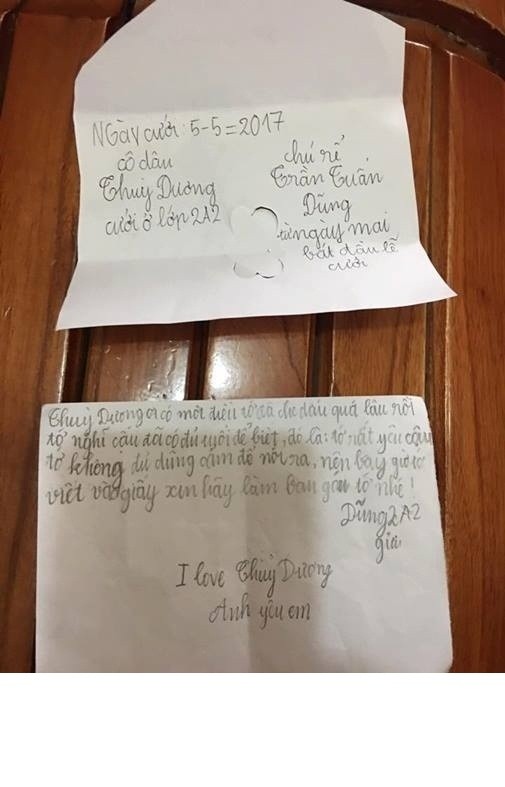 NGày cưới: 5-5=2017
cô dâu
Thuỳ Dương
cưới ở lớp 2A2
chú rể
Trần Tuấn
Dũng
từ ngày mai
bắt đầu lễ
cưới
Thuỳ Dương ơi có một điều tớ đã che dấu quá lâu rồi
tớ nghĩ cậu đã có đủ tuổi để biết, đó là: tớ rất yêu cậu
tớ không đủ dũng cảm để nói ra, nên bây giờ tớ
viết vào giấy xin hãy làm bạn gái tớ nhé!
Dũng 2A2
gửi
I love Thuỳ Dương
Anh yêu em